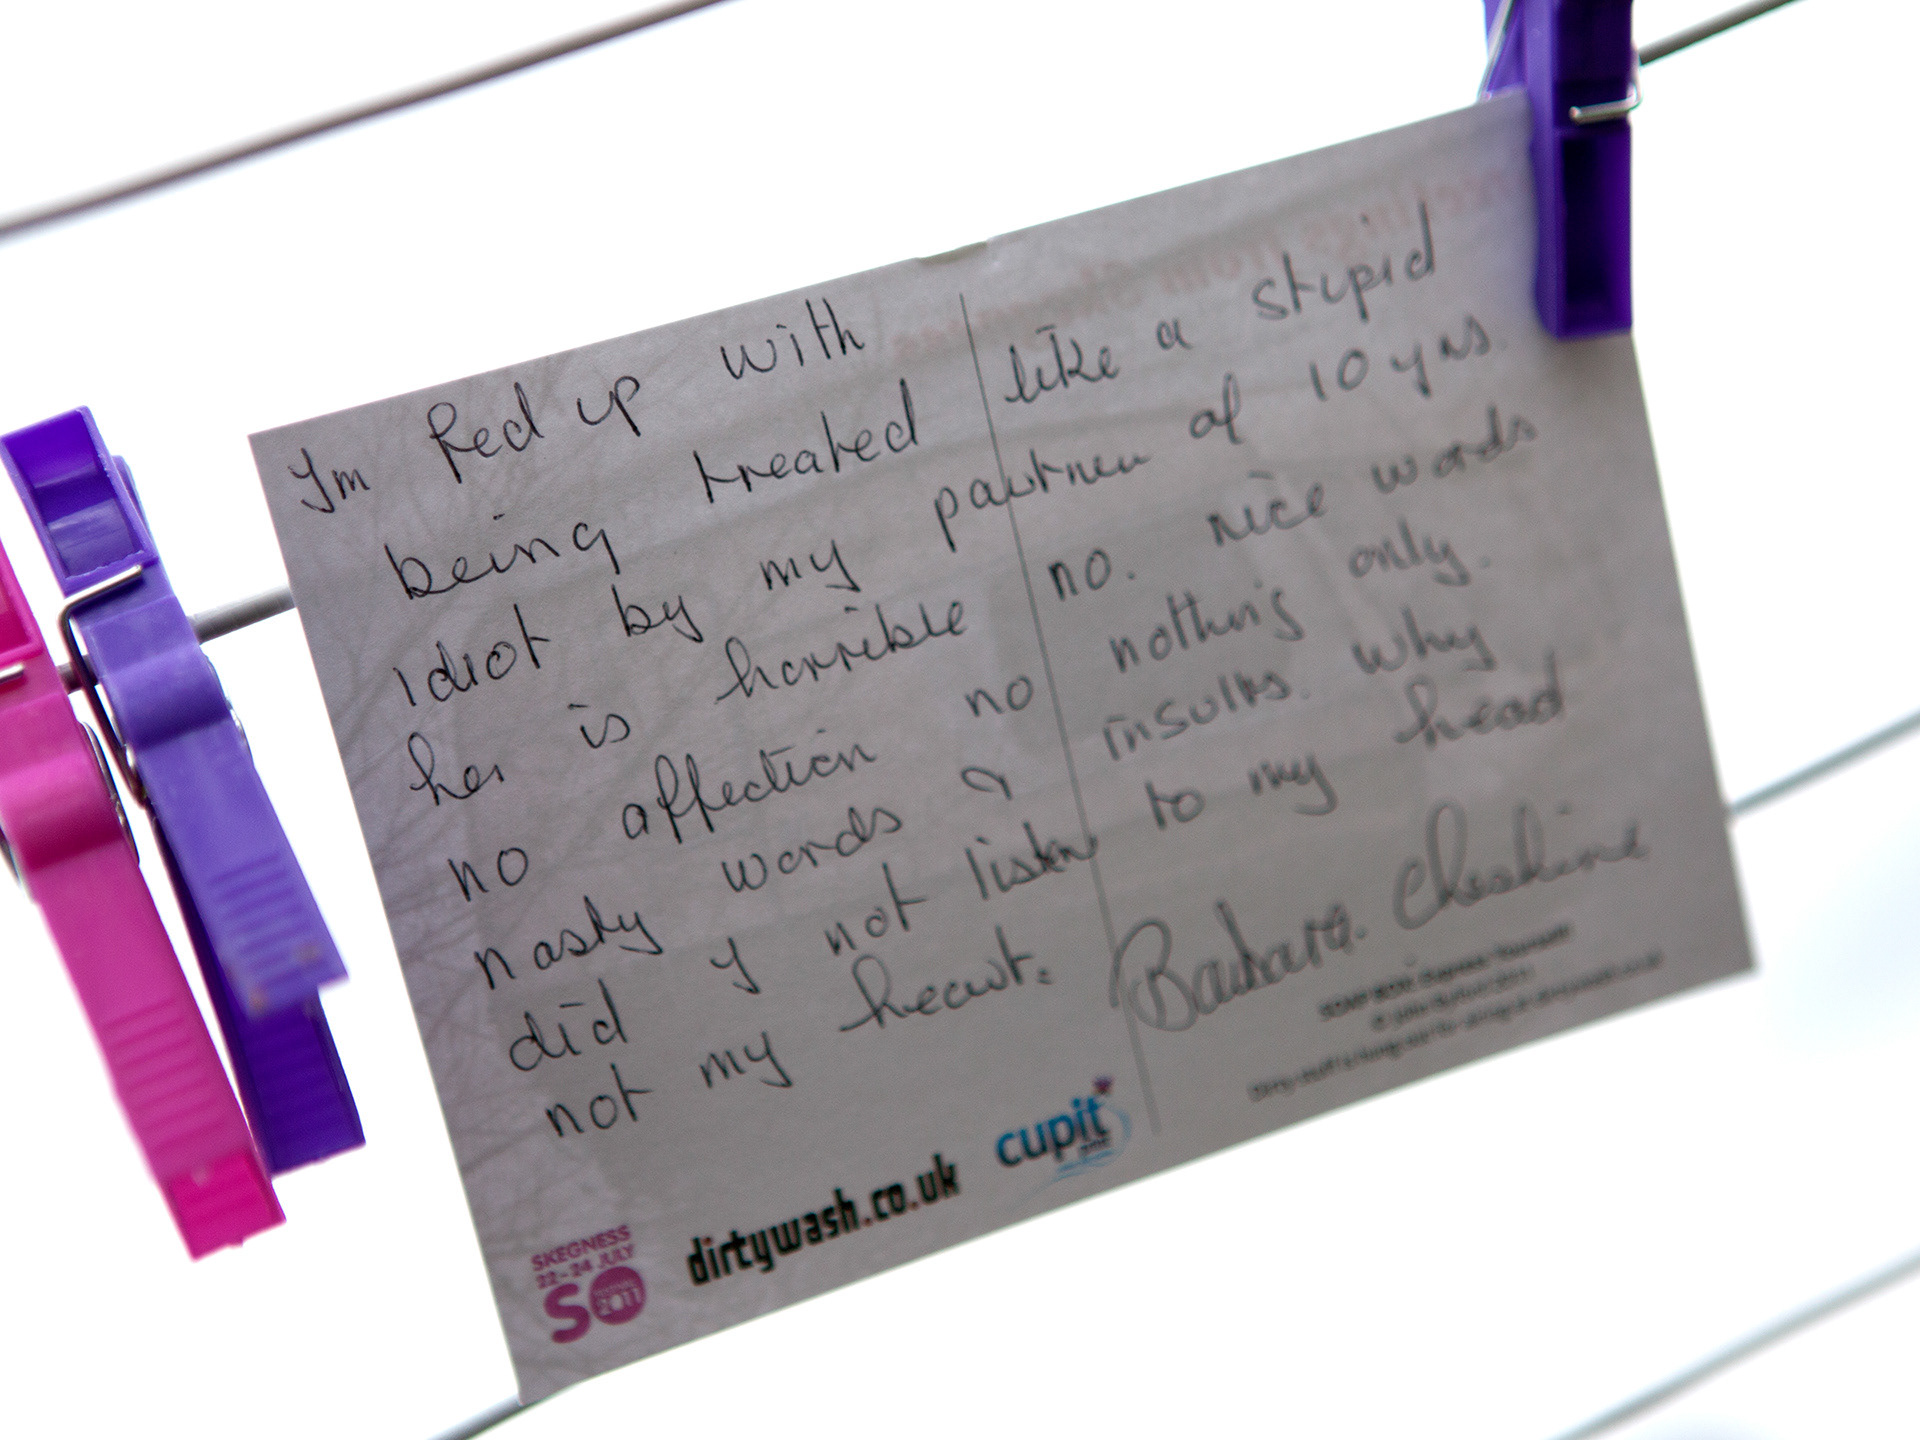 Im fed up with
being treated like a stupid
idiot by my partner of 10 yrs.
he. is horrible no. nice words
no affection no nothing only.
nasty words & insults. why
did y not listen to my head
not my heart. Barbara.
SKEGNESS
22-24 JULY
SO FESTIVAL 2011
dirtywash.co.uk
cupit